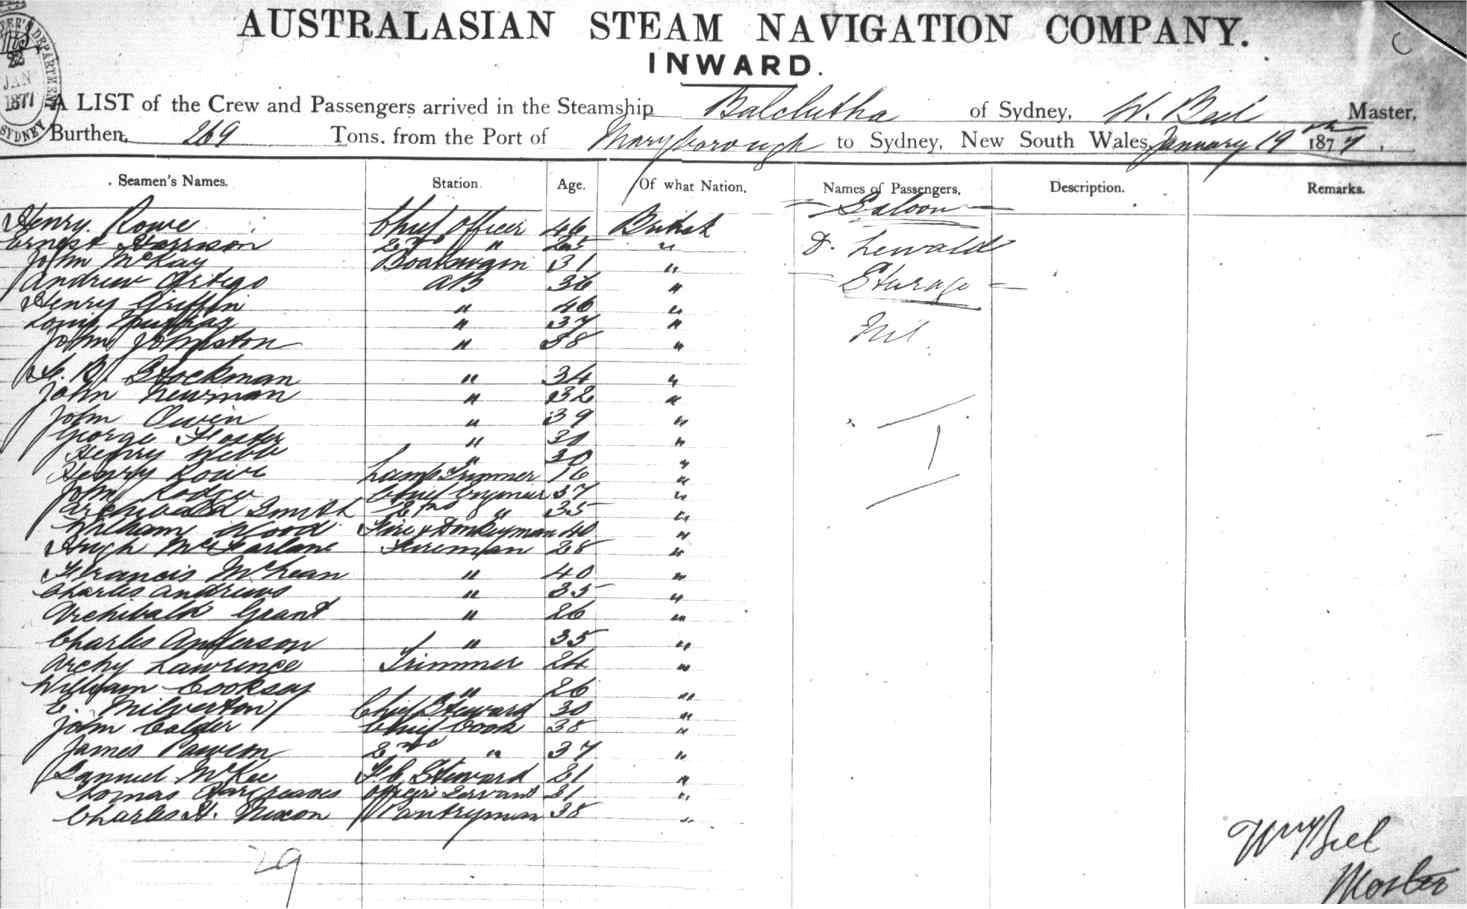 AUSTRALASIAN STEAM NAVIGATION COMPANY.
INWARD.
A LIST of the Crew and Passengers arrived in the Steamship Balclutha of Sydney, W. Beel Master,
Burthen, 269 Tons, from the Port of Maryborough to Sydney, New South Wales, January 19th 1877.
JAN
1877
SYDNEY
Seamen's Names. Station. Age. Of what Nation. Names of Passengers. Description. Remarks.
— Saloon —
Henry Rowe Chief Officer 46 British
Ernest Harrison 2nd " 25 "
D. Lewald
John McKay Boatswain 31 "
Andrew Ortego AB 36 "
— Steerage —
Henry Griffin " 46 "
Louis Murray " 37 "
Nil.
John Johnston " 38 "
Stockman " 34 "
John Newman " 32 "
John Owen " 39 "
George Foster " 30 "
1
Henry Webb " 30 "
Henry Rowe Lamp Trimmer 16 "
John Rodger Chief Engineer 37 "
Archibald Smith 2nd " 35 "
William Wood Fire & Donkeyman 40 "
Hugh McFarlane Fireman 28 "
Francis McKean " 40 "
Charles Andrews " 35 "
Archibald Grant " 26 "
Charles Anderson " 35 "
Archy Lawrence Trimmer 24 "
William Cooksay " 26 "
E. Milverton Chief Steward 30 "
John Calder Chief Cook 38 "
James Pawson 2nd " 37 "
Samuel McKee F.C. Steward 21 "
Thomas Hargreaves Officers Servant 21 "
Charles H. Nixon Pantryman 38 "
29
Wm Beel
Master